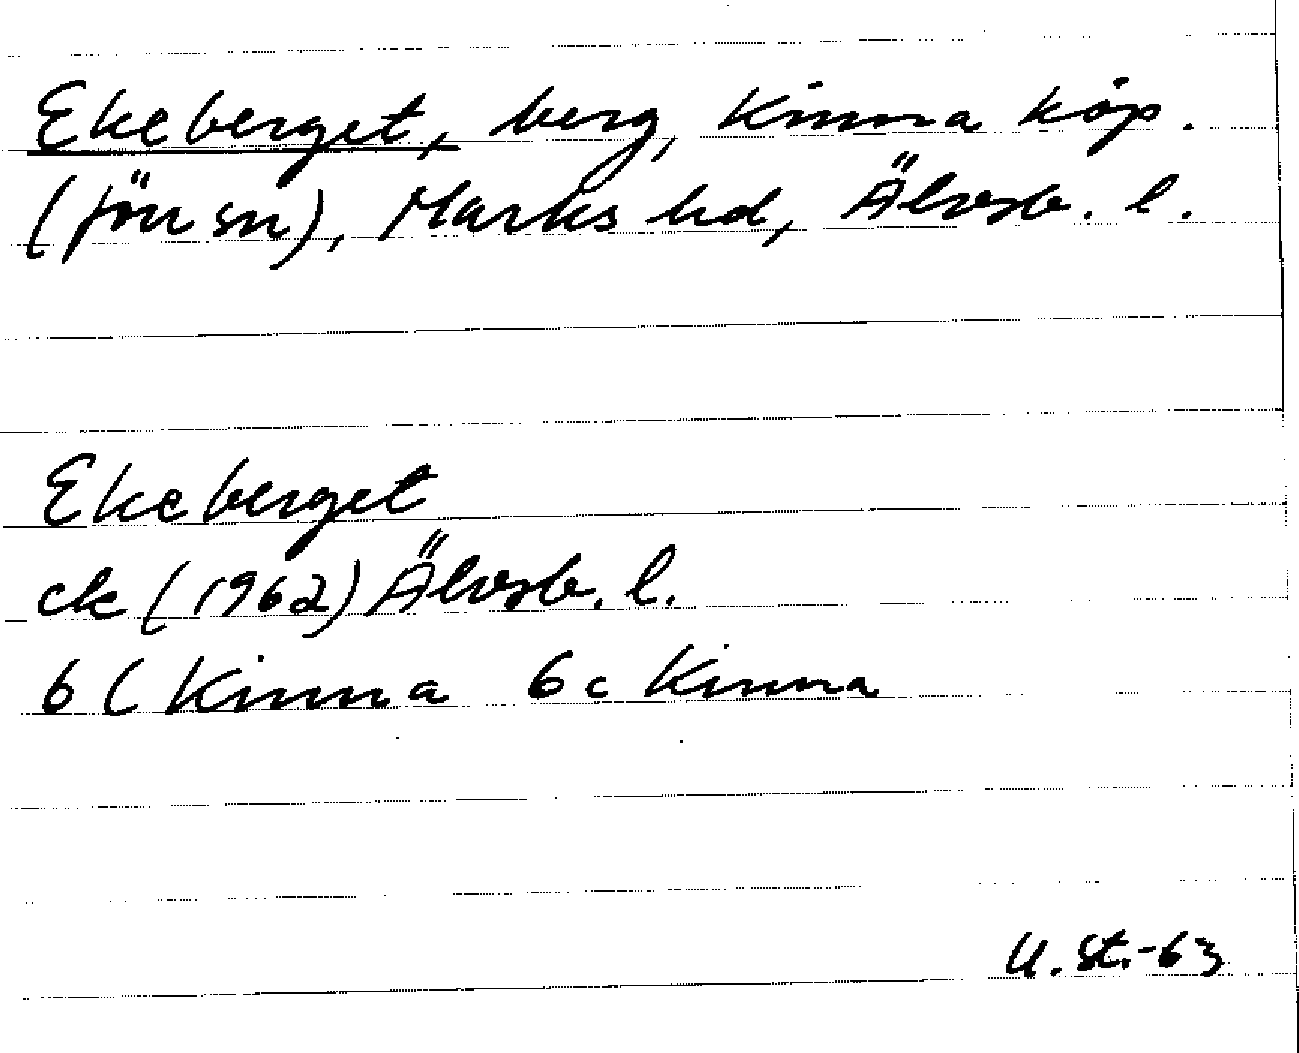 Ekeberget, berg, Kinna köp.
(förr sn), Marks hd, Älvsb. l.
Ekeberget
ek (1962) Älvsb. l.
6 ( Kinna 6 c Kinna
U. St.-63